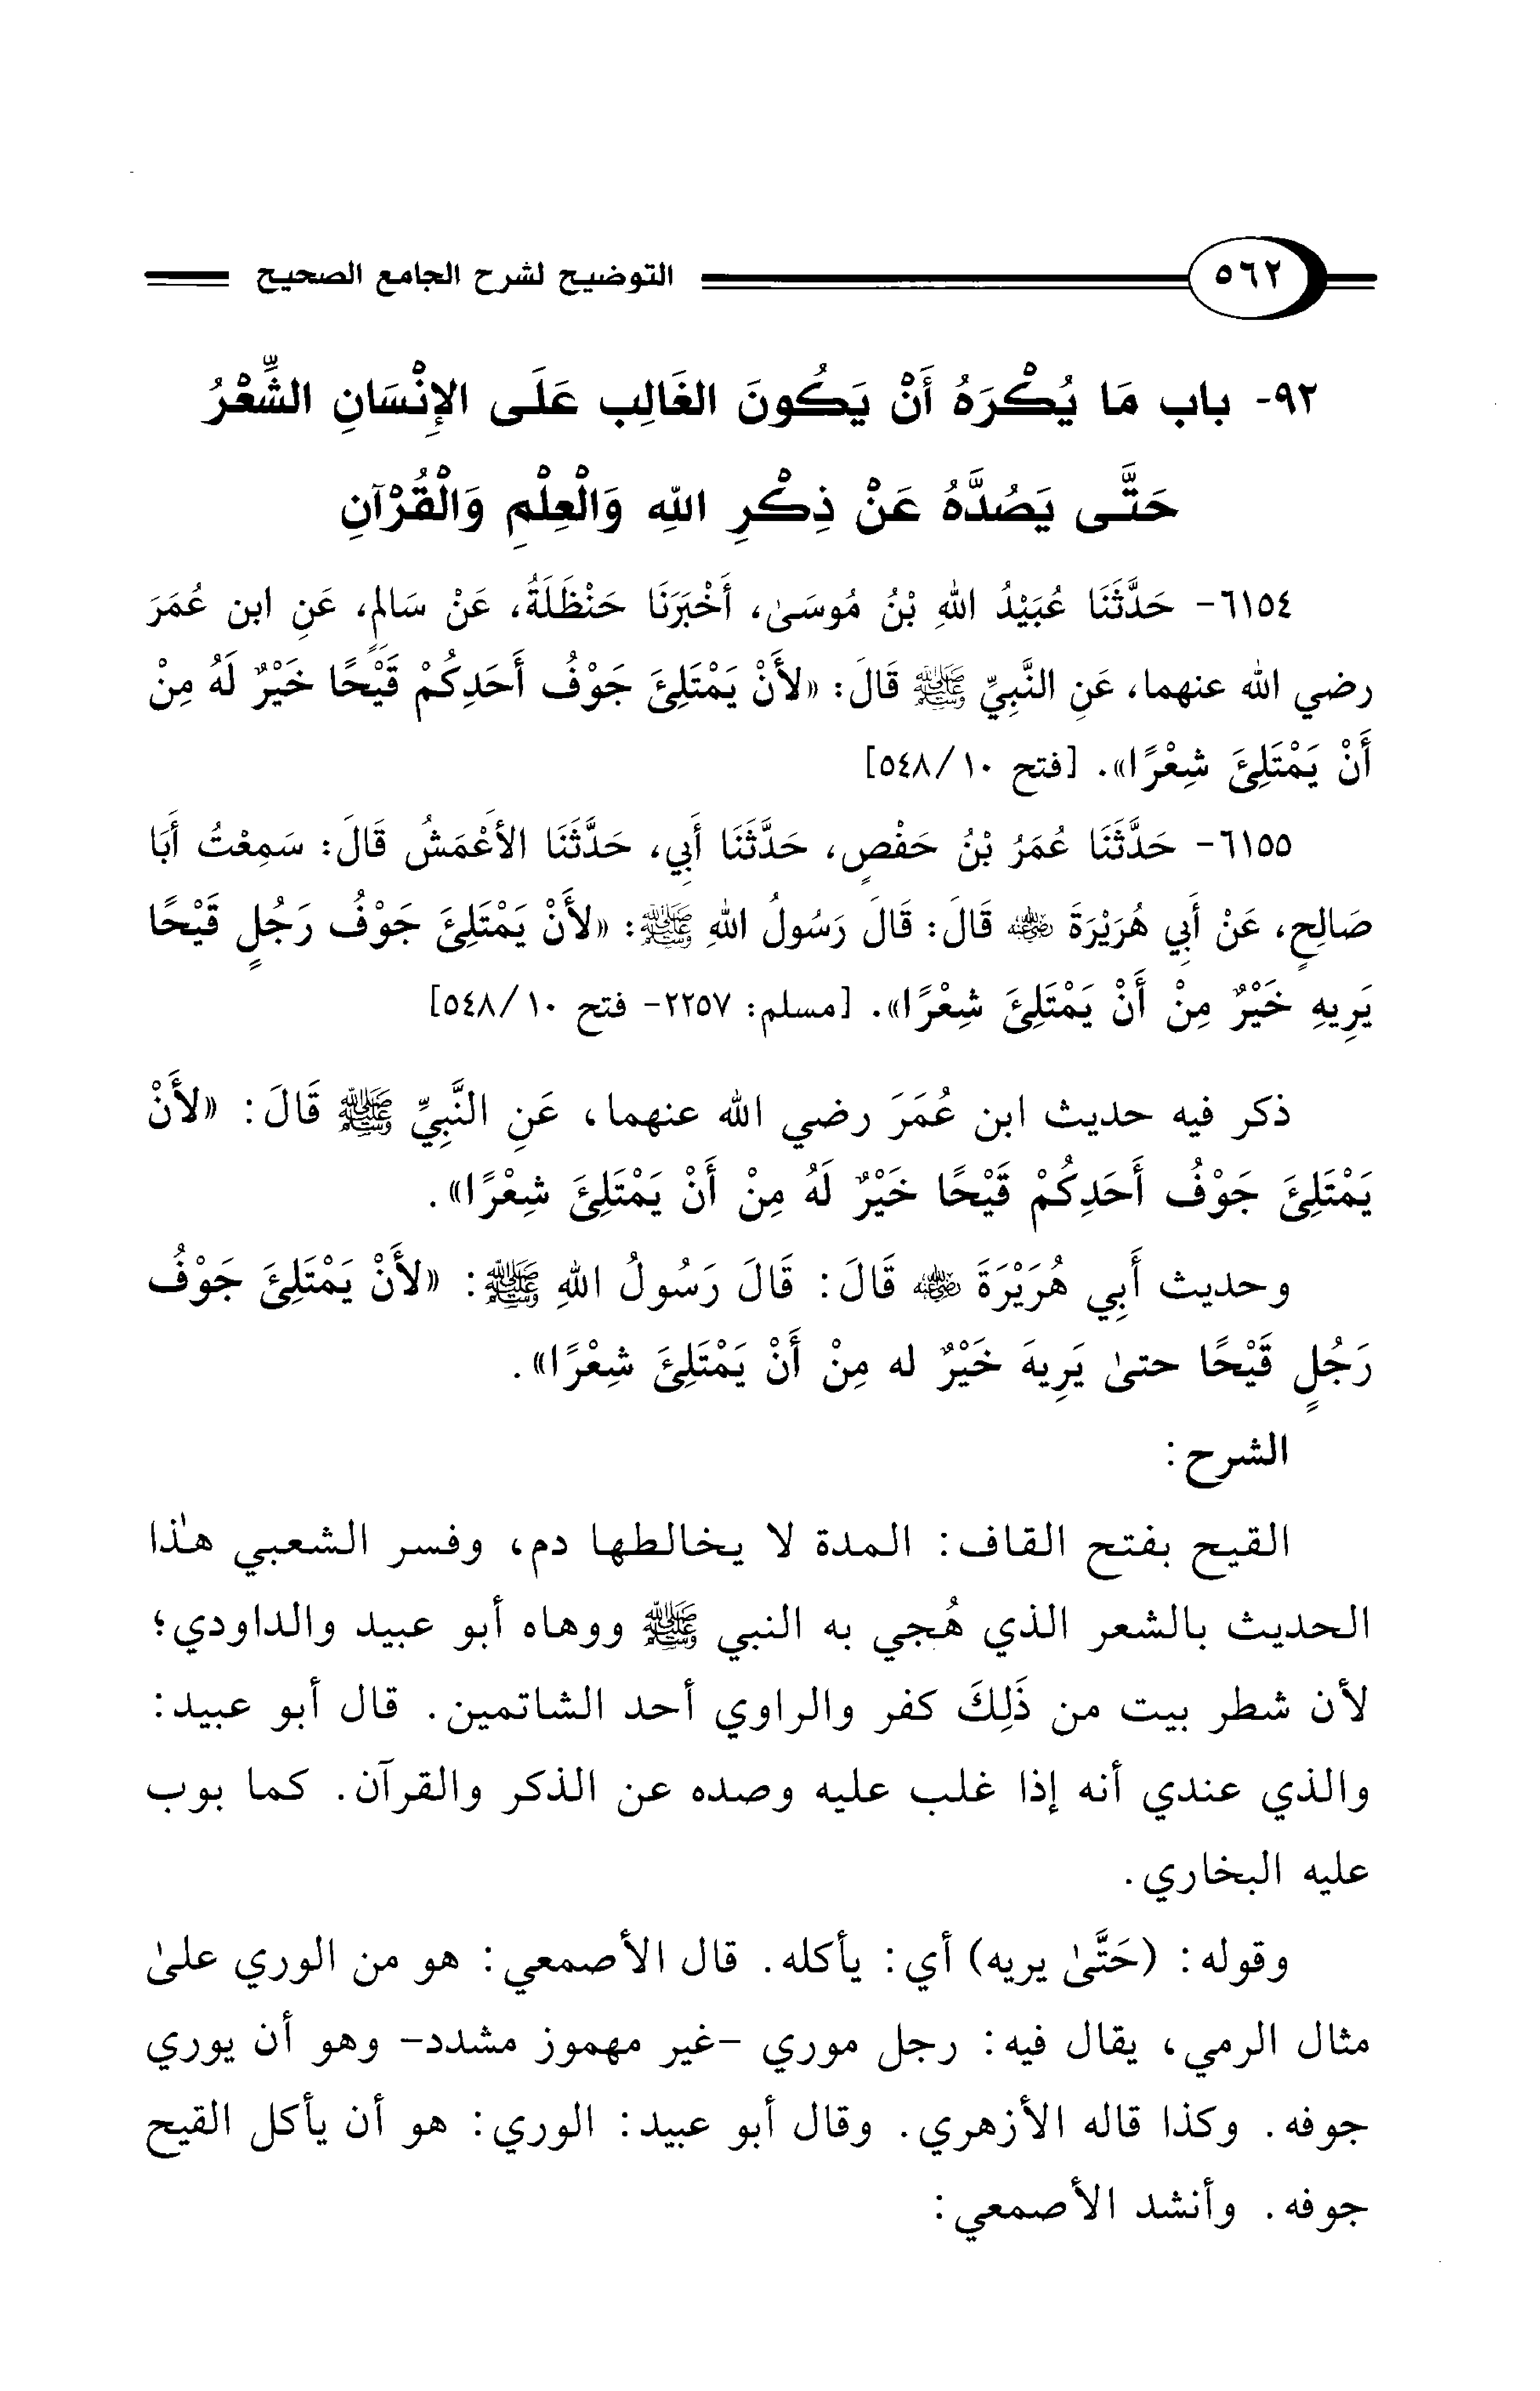 ٥٦٢ التوضيح لشرح الجامع الصحيح
٩٢- باب مَا يُكْرَهُ أَنْ يَكُونَ الغَالِب عَلَى الإِنْسَانِ الشِّعْرُ
حَتَّى يَصُدَّهُ عَنْ ذِكْرِ اللهِ وَالْعِلْمِ وَالْقُرْآنِ
٦١٥٤- حَدَّثَنَا عُبَيْدُ اللهِ بْنُ مُوسَىٰ، أَخْبَرَنَا حَنْظَلَةُ، عَنْ سَالِمٍ، عَنِ ابن عُمَرَ
رضي الله عنهما، عَنِ النَّبِيِّ ﷺ قَالَ: «لأَنْ يَمْتَلِئَ جَوْفُ أَحَدِكُمْ قَيْحًا خَيْرٌ لَهُ مِنْ
أَنْ يَمْتَلِئَ شِعْرًا». [فتح ١٠/ ٥٤٨]
٦١٥٥- حَدَّثَنَا عُمَرُ بْنُ حَفْصٍ، حَدَّثَنَا أَبِي، حَدَّثَنَا الأَعْمَشُ قَالَ: سَمِعْتُ أَبَا
صَالِحٍ، عَنْ أَبِي هُرَيْرَةَ رضي الله عنه قَالَ: قَالَ رَسُولُ اللهِ ﷺ: «لأَنْ يَمْتَلِئَ جَوْفُ رَجُلٍ قَيْحًا
يَرِيهِ خَيْرٌ مِنْ أَنْ يَمْتَلِئَ شِعْرًا». [مسلم: ٢٢٥٧- فتح ١٠/ ٥٤٨]
ذكر فيه حديث ابن عُمَرَ رضي الله عنهما، عَنِ النَّبِيِّ ﷺ قَالَ: «لأَنْ
يَمْتَلِئَ جَوْفُ أَحَدِكُمْ قَيْحًا خَيْرٌ لَهُ مِنْ أَنْ يَمْتَلِئَ شِعْرًا».
وحديث أَبِي هُرَيْرَةَ رضي الله عنه قَالَ: قَالَ رَسُولُ اللهِ ﷺ: «لأَنْ يَمْتَلِئَ جَوْفُ
رَجُلٍ قَيْحًا حتىٰ يَرِيهَ خَيْرٌ له مِنْ أَنْ يَمْتَلِئَ شِعْرًا».
الشرح:
القيح بفتح القاف: المدة لا يخالطها دم، وفسر الشعبي هذا
الحديث بالشعر الذي هُجي به النبي ﷺ ووهاه أبو عبيد والداودي؛
لأن شطر بيت من ذَلِكَ كفر والراوي أحد الشاتمين. قال أبو عبيد:
والذي عندي أنه إذا غلب عليه وصده عن الذكر والقرآن. كما بوب
عليه البخاري.
وقوله: (حَتَّىٰ يريه) أي: يأكله. قال الأصمعي: هو من الوري علىٰ
مثال الرمي، يقال فيه: رجل موري -غير مهموز مشدد- وهو أن يوري
جوفه. وكذا قاله الأزهري. وقال أبو عبيد: الوري: هو أن يأكل القيح
جوفه. وأنشد الأصمعي: